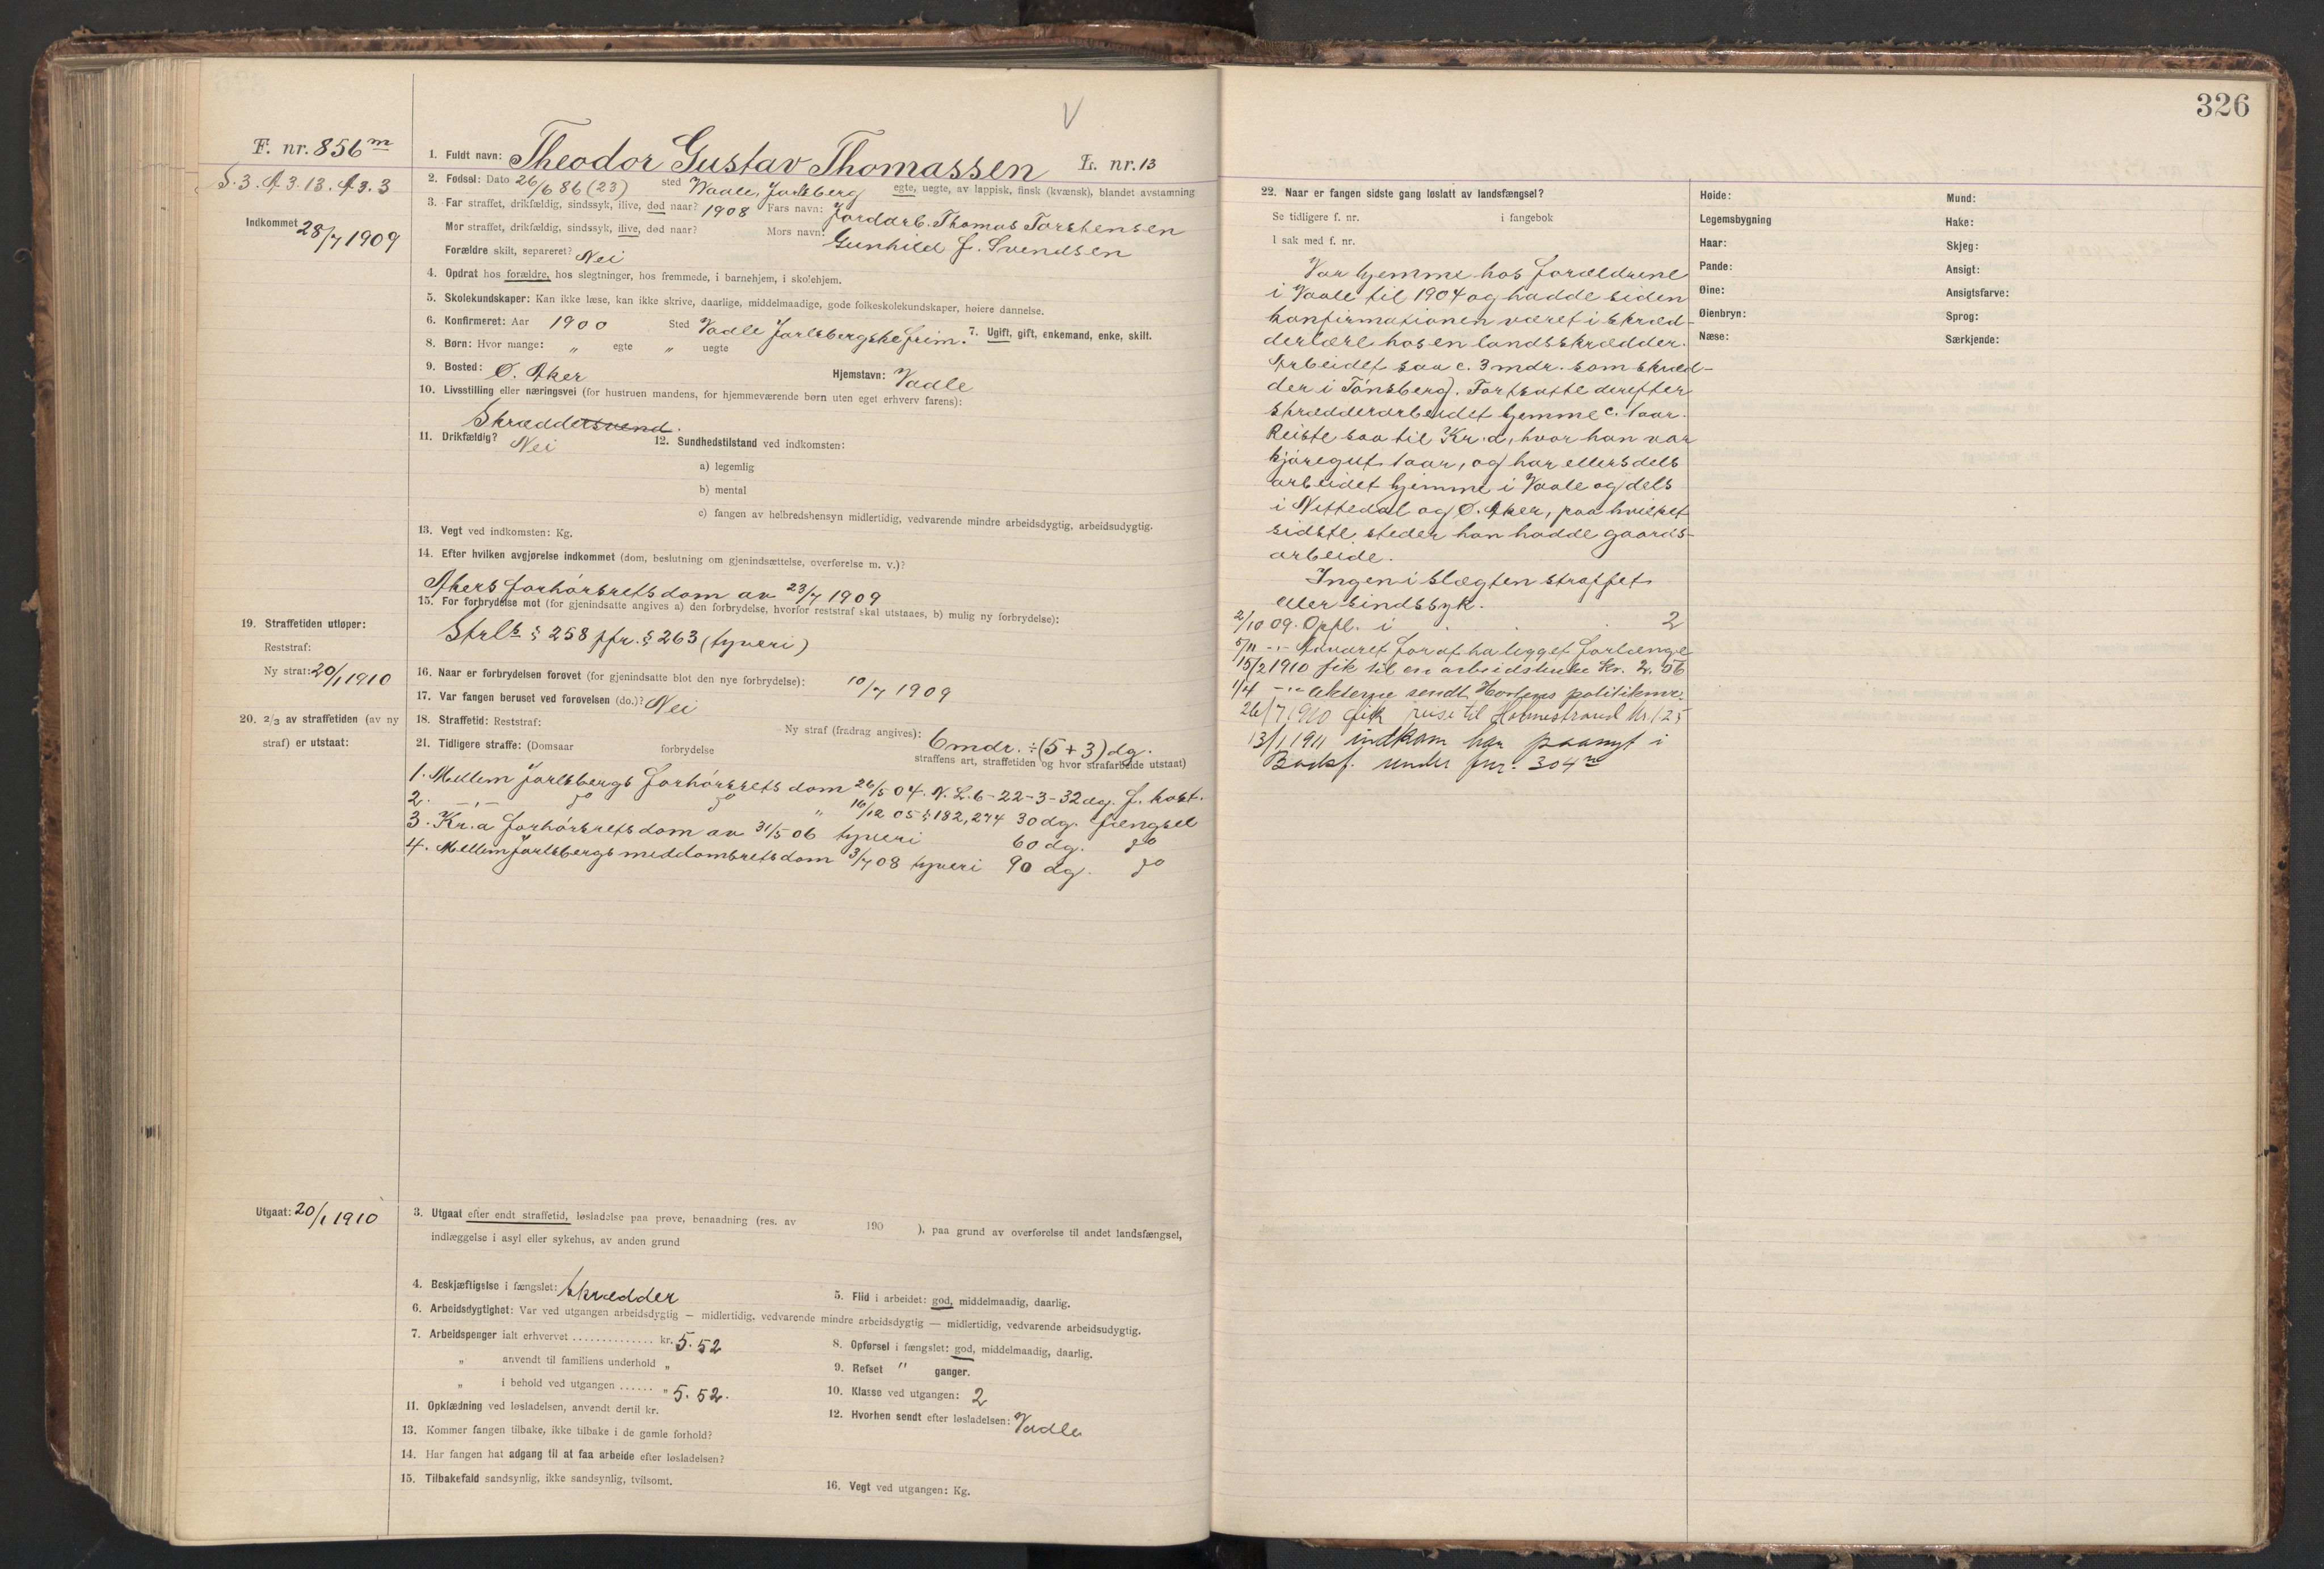 326
V
F. nr. 856 m
1. Fuldt navn: Theodor Gustav Thomassen L. nr. 13
S. 3. A 3. 13. A 3. 3
2. Fødsel: Dato 26/6 86 (23) sted Vaale, Jarlsberg egte, uegte, av lappisk, finsk (kvænsk), blandet avstamning
Indkommet 28/7 1909
3. Far straffet, drikfældig, sindssyk, ilive, død naar? 1908 Fars navn: Jordarb. Thomas Torstensen
Mor straffet, drikfældig, sindssyk, ilive, død naar? Mors navn: Gunhild J. Svendsen
Forældre skilt, separeret? Nei
4. Opdrat hos forældre, hos slegtninger, hos fremmede, i barnehjem, i skolehjem.
5. Skolekundskaper: Kan ikke læse, kan ikke skrive, daarlige, middelmaadige, gode folkeskolekundskaper, høiere dannelse.
6. Konfirmeret: Aar 1900 Sted Vaale Jarlsberg 7. Ugift, gift, enkemand, enke, skilt.
8. Børn: Hvor mange: „ egte „ uegte
9. Bosted: Ø. Aker Hjemstavn: Vaale
10. Livsstilling eller næringsvei (for hustruen mandens, for hjemmeværende børn uten eget erhverv farens):
Skræddersvend.
11. Drikfældig? Nei 12. Sundhedstilstand ved indkomsten:
a) legemlig
b) mental
c) fangen av helbredshensyn midlertidig, vedvarende mindre arbeidsdygtig, arbeidsudygtig.
13. Vegt ved indkomsten: Kg.
14. Efter hvilken avgjørelse indkommet (dom, beslutning om gjenindsættelse, overførelse m. v.)?
Akers forhørsretsdom av 23/7 1909
15. For forbrydelse mot (for gjenindsatte angives a) den forbrydelse, hvorfor reststraf skal utstaaes, b) mulig ny forbrydelse):
Strlb § 258 jfr. § 263 (tyveri)
19. Straffetiden utløper:
Reststraf:
Ny straf: 20/1 1910
16. Naar er forbrydelsen forøvet (for gjenindsatte blot den nye forbrydelse): 10/7 1909
17. Var fangen beruset ved forøvelsen (do.)? Nei
20. 2/3 av straffetiden (av ny
straf) er utstaat:
18. Straffetid: Reststraf: Ny straf (fradrag angives): 6 mdr. ÷ (5 + 3) dg.
21. Tidligere straffe: (Domsaar forbrydelse straffens art, straffetiden og hvor strafarbeide utstaat)
1. Mellem Jarlsbergs forhørsrets dom 26/5 04. N. L. 6-22-3-32 dg. f. kost.
2. -"- do do " 16/12 05 § 182, 274 30 dg. fængsel
3. Kr.a forhørsrets dom av 31/5 06 tyveri 60 dg. do
4. Mellem Jarlsbergs meddomsrets dom 3/7 08 tyveri 90 dg. do
Utgaat: 20/1 1910
3. Utgaat efter endt straffetid, løsladelse paa prøve, benaadning (res. av 190 ), paa grund av overførelse til andet landsfængsel,
indlæggelse i asyl eller sykehus, av anden grund
4. Beskjæftigelse i fængslet: Skrædder 5. Flid i arbeidet: god, middelmaadig, daarlig.
6. Arbeidsdygtighet: Var ved utgangen arbeidsdygtig — midlertidig, vedvarende mindre arbeidsdygtig — midlertidig, vedvarende arbeidsudygtig.
7. Arbeidspenger ialt erhvervet .............. kr. 5.52 8. Opførsel i fængslet: god, middelmaadig, daarlig.
„ anvendt til familiens underhold „ 9. Refset " ganger.
„ i behold ved utgangen ...... „ 5.52. 10. Klasse ved utgangen: 2
11. Opklædning ved løsladelsen, anvendt dertil kr. 12. Hvorhen sendt efter løsladelsen: Vaale
13. Kommer fangen tilbake, ikke tilbake i de gamle forhold?
14. Har fangen hat adgang til at faa arbeide efter løsladelsen?
15. Tilbakefald sandsynlig, ikke sandsynlig, tvilsomt. 16. Vegt ved utgangen: Kg.
22. Naar er fangen sidste gang løslatt av landsfængsel?
Se tidligere f. nr. i fangebok
I sak med f. nr.
Var hjemme hos forældrene
i Vaale til 1904 og hadde siden
konfirmationen været i skræd-
derlære hos en landsskrædder.
Arbeidet saa c. 3 mdr. som skræd-
der i Tønsberg. Fortsatte derefter
skrædderarbeidet hjemme c. 1 aar.
Reiste saa til Kr.a, hvor han var
kjøregut 1 aar, og har ellers dels
arbeidet hjemme i Vaale og dels
i Nittedal og Ø. Aker, paa hvilket
sidste steder han hadde gaards-
arbeide.
Ingen i slægten straffet
eller sindssyk.
2/10 09. Opfl. i . . . 2
5/11 -"- Advaret for at ha ligget forlænge
15/2 1910 fik til en arbeidsbluse Kr. 2,56
1/4 -"- Akterne sendt Hortens politikm.
26/7 1910 fik reise til Holmestrand Kr. 1,25
13/1 1911 indkom her paanyt i
Bodsf. under fnr. 304 n
Høide:
Legemsbygning
Haar:
Pande:
Øine:
Øienbryn:
Næse:
Mund:
Hake:
Skjeg:
Ansigt:
Ansigtsfarve:
Sprog:
Særkjende: